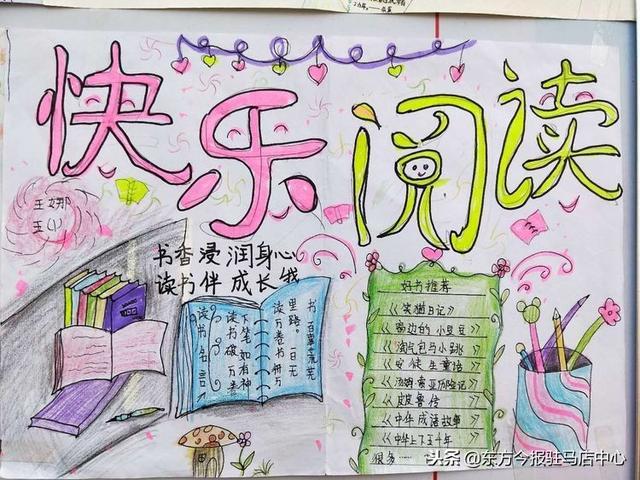 快乐阅读
王娜
五(1)
书香浸润身心
读书伴成长我
读书名言:
读书破万卷
下笔如有神
读万卷书行万
里路。一日无
书,百事荒芜
好书推荐
《笑猫日记》
《窗边的小豆豆》
《淘气包马小跳》
《安徒生童话》
《汤姆索亚历险记》
《皮皮鲁传》
《中华成语故事》
《中华上下五千年》
很多……
头条@东方今报驻马店中心